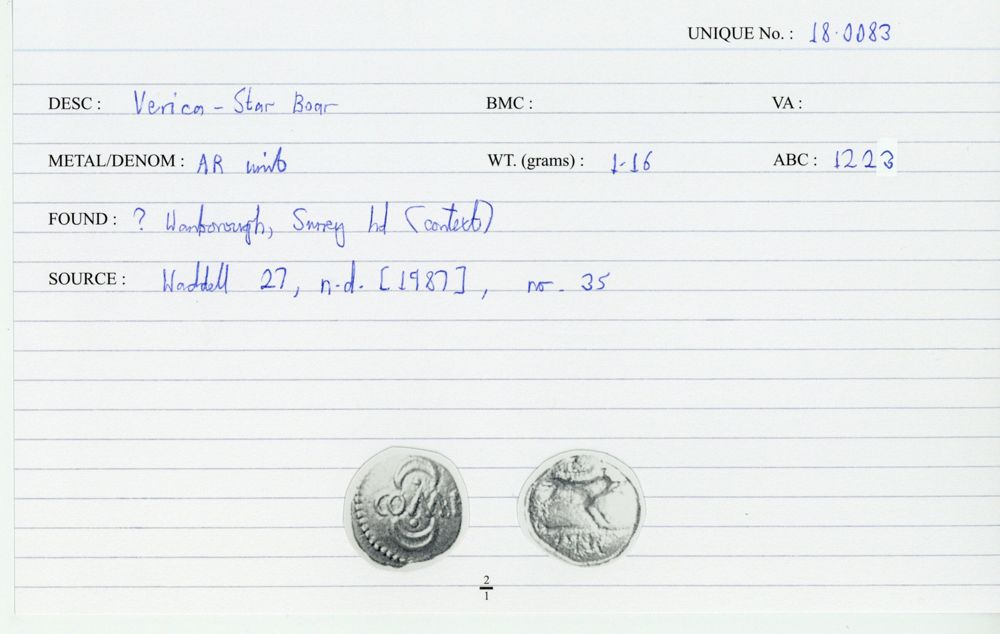 UNIQUE No. : 18·0083
DESC : Verica - Star Boar BMC : VA :
METAL/DENOM : AR unit WT. (grams) : 1·16 ABC : 1223
FOUND : ? Wanborough, Surrey hd (context)
SOURCE : Waddell 27, n.d. [1987], no. 35
COMM
2
1